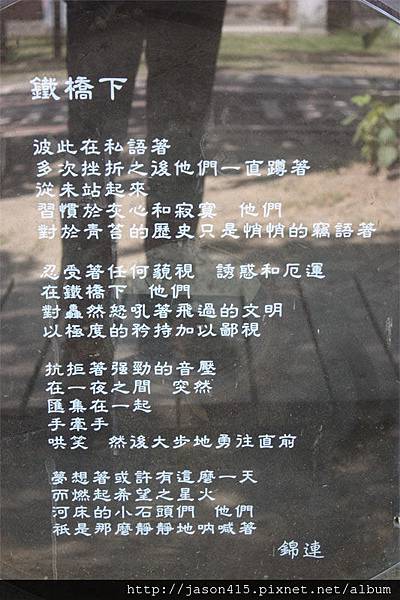 鐵橋下
彼此在私語著
多次挫折之後他們一直蹲著
從未站起來
習慣於灰心和寂寞　他們
對於青苔的歷史只是悄悄的竊語著
忍受著任何藐視　誘惑和厄運
在鐵橋下　他們
對轟然怒吼著飛過的文明
以極度的矜持加以鄙視
抗拒著强勁的音壓
在一夜之間　突然
匯集在一起
手牽手
哄笑　然後大步地勇往直前
夢想著或許有這麼一天
而燃起希望之星火
河床的小石頭們　他們
祇是那麼靜靜地吶喊著
錦連
http://jason415.pixnet.net/album